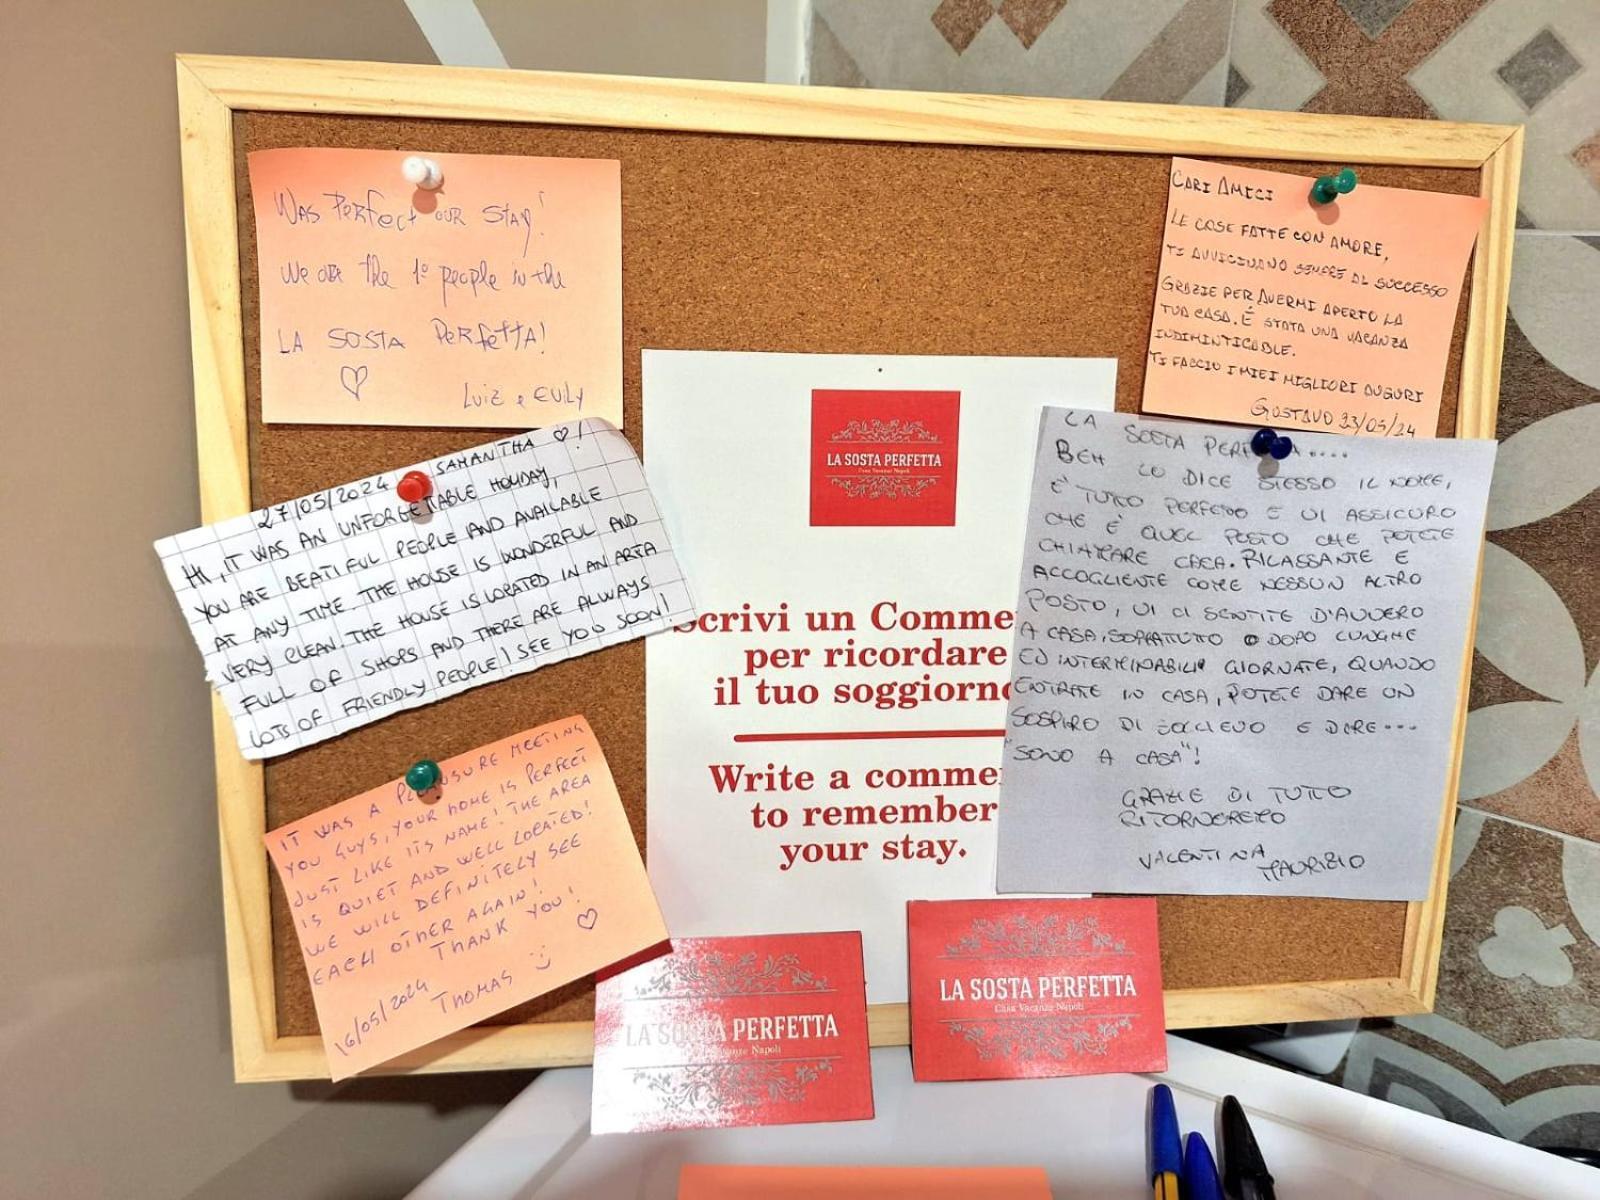 Was Perfect our stay!
We are the 1º people in the
LA SOSTA PERfettA!
Luiz e Evily
27/05/2024 SAMANTHA
HI, IT WAS AN UNFORGETTABLE HOLIDAY,
YOU ARE BEATIFUL PEOPLE AND AVAILABLE
AT ANY TIME. THE HOUSE IS WONDERFUL AND
VERY CLEAN. THE HOUSE IS LOCATED IN AN AREA
FULL OF SHOPS AND THERE ARE ALWAYS
LOTS OF FRIENDLY PEOPLE! SEE YOU SOON!
IT WAS A PLEASURE MEETING
YOU GUYS, YOUR HOME IS PERFECT
JUST LIKE ITS NAME! THE AREA
IS QUIET AND WELL LOCATED!
WE WILL DEFINITELY SEE
EACH OTHER AGAIN!
THANK YOU!
16/05/2024 THOMAS
LA SOSTA PERFETTA
Casa Vacanze Napoli
Scrivi un Comme
per ricordare
il tuo soggiorno
Write a comme
to remember
your stay.
CARI AMICI
LE COSE FATTE CON AMORE,
TI AVVICINANO SEMPRE AL SUCCESSO
GRAZIE PER AVERMI APERTO LA
TUA CASA. È STATA UNA VACANZA
INDIMINTICABLE.
TI FACCIO I MIEI MIGLIORI AUGURI
GUSTAVO 23/05/24
LA SOSTA PERFE A....
BEH LO DICE STESSO IL NOME,
E' TUTTO PERFETTO E VI ASSICURO
CHE E' QUEL POSTO CHE POTETE
CHIAMARE CASA. RILASSANTE E
ACCOGLIENTE COME NESSUN ALTRO
POSTO, VI CI SENTITE D'AVVERO
A CASA, SOPRATUTTO DOPO LUNGHE
ED INTERMINABILI GIORNATE, QUANDO
ENTRATE IN CASA, POTETE DARE UN
SOSPIRO DI SOLLIEVO E DIRE...
"SONO A CASA"!
GRAZIE DI TUTTO
RITORNEREMO
VALENTINA
MAURIZIO
LA SOSTA PERFETTA
Vacanze Napoli
LA SOSTA PERFETTA
Casa Vacanze Napoli